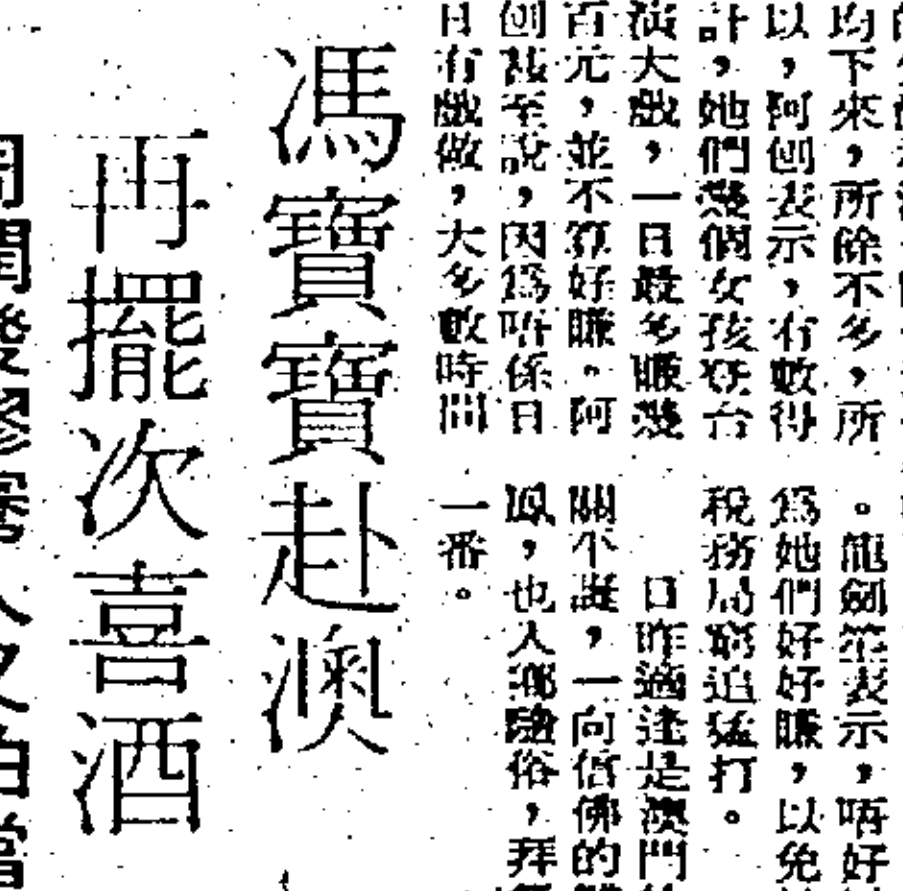 均下來，所餘不多，所
以，阿刨表示，有數得
計，她們幾個女孩台
演大戲，一日最多賺幾
百元，並不算好賺。阿
刨甚至說，因為唔係日
日有戲做，大多數時間
。龍劍笙表示，唔好
為她們好好賺，以免
稅務局窮追猛打。
日昨適逢是澳門
誕，一向信佛的
鳳，也入鄉隨俗，拜
一番。
馮寶寶赴澳
再擺次喜酒